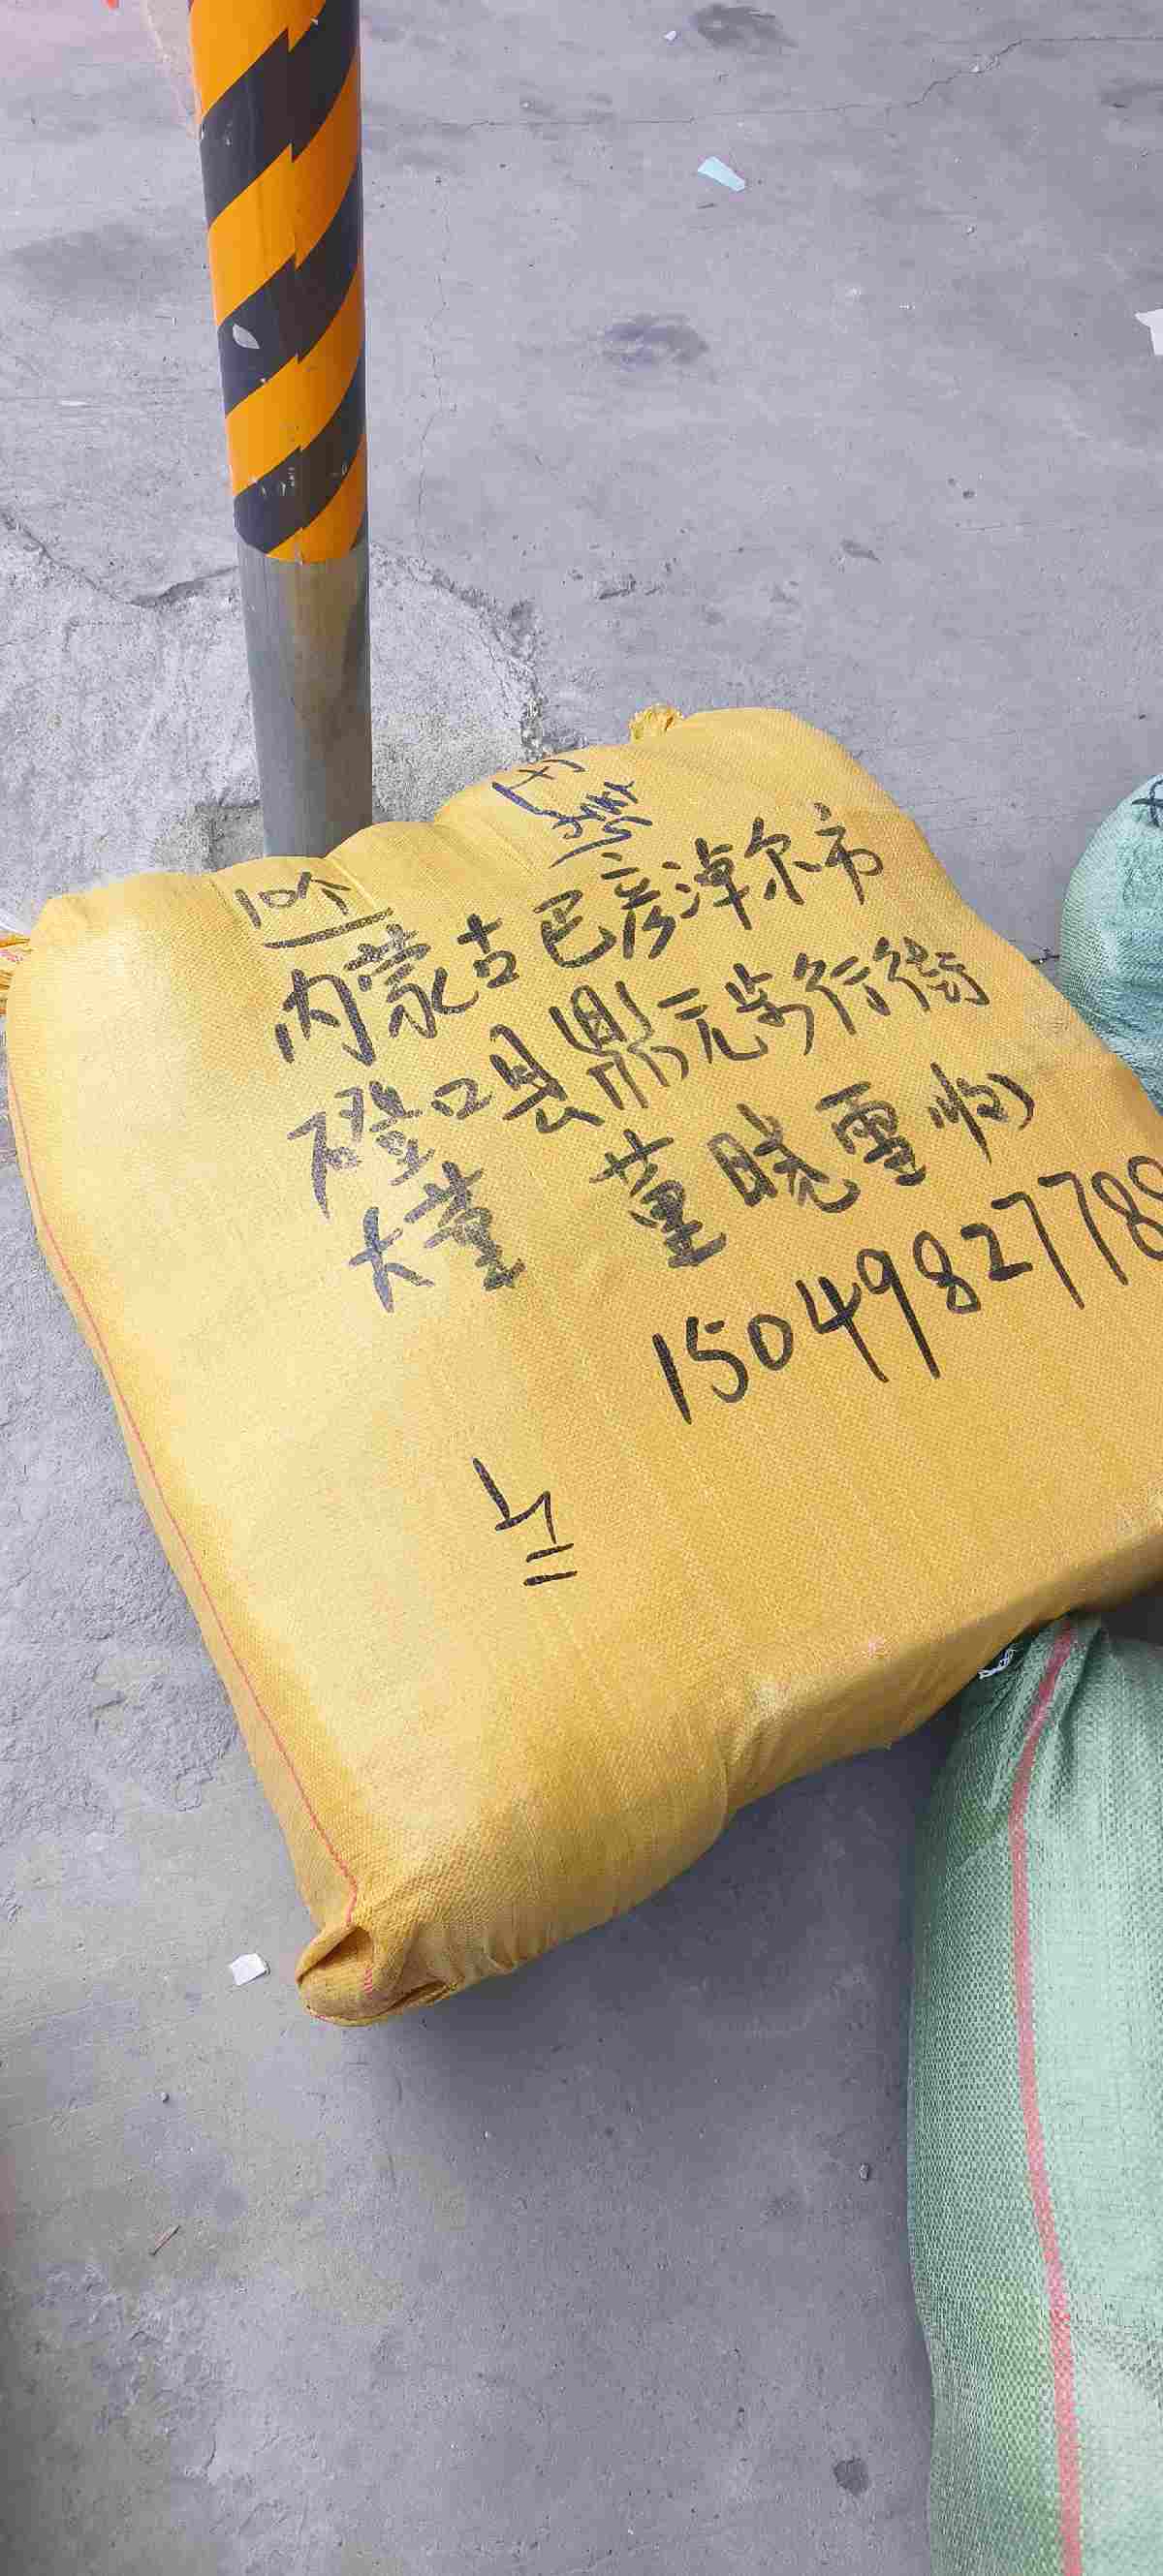 10个
内蒙古巴彦淖尔市
磴口县鼎元步行街
大堂 董晓雪(收)
1504982778